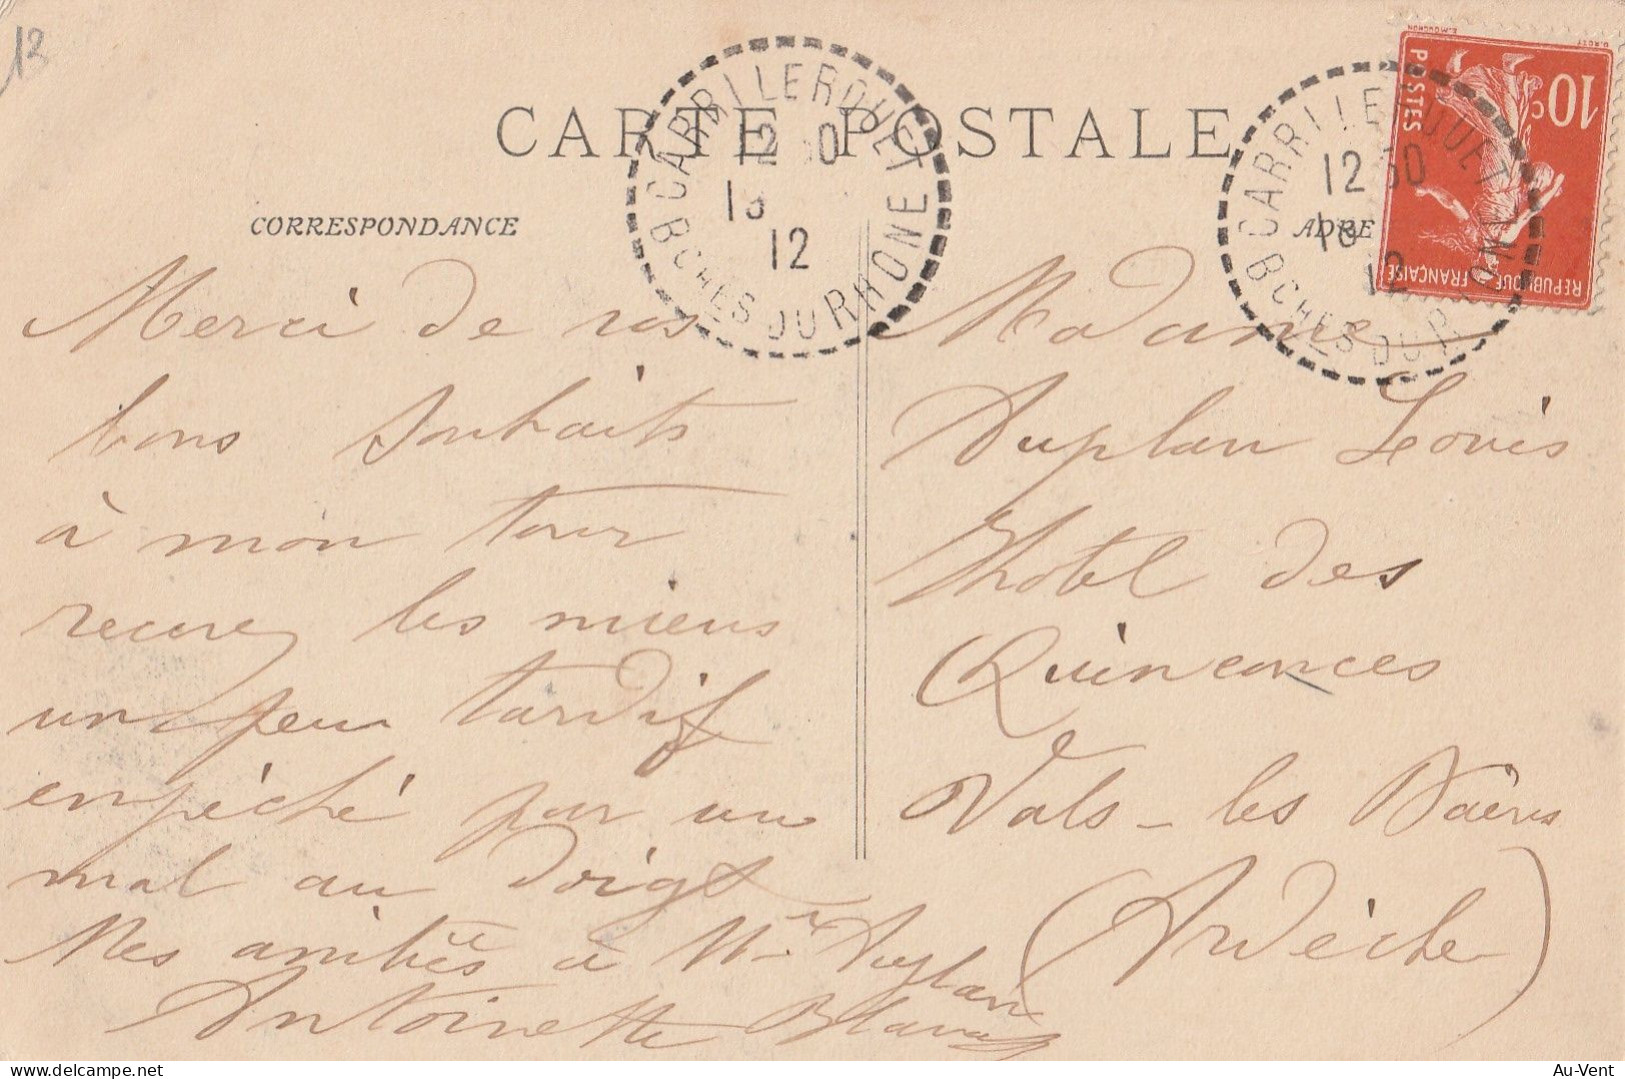 13
CARTE POSTALE
CORRESPONDANCE
ADRE
CARRI LE ROUET
12 30
13
12
BCHES DU RHONE
CARRI LE ROUET
12 30
12
BCHES DU RHONE
10c
POSTES
REPUBLIQUE FRANÇAISE
Merci de vos
bons souhaits
à mon tour
recevez les miens
un peu tardif
empêché par un
mal au doigt
Mes amitiés à Mr Duplan
Antoinette
Madame
Duplan Louis
Hotel des
Quinconces
Vals-les Bains
(Ardèche)
Au-Vent